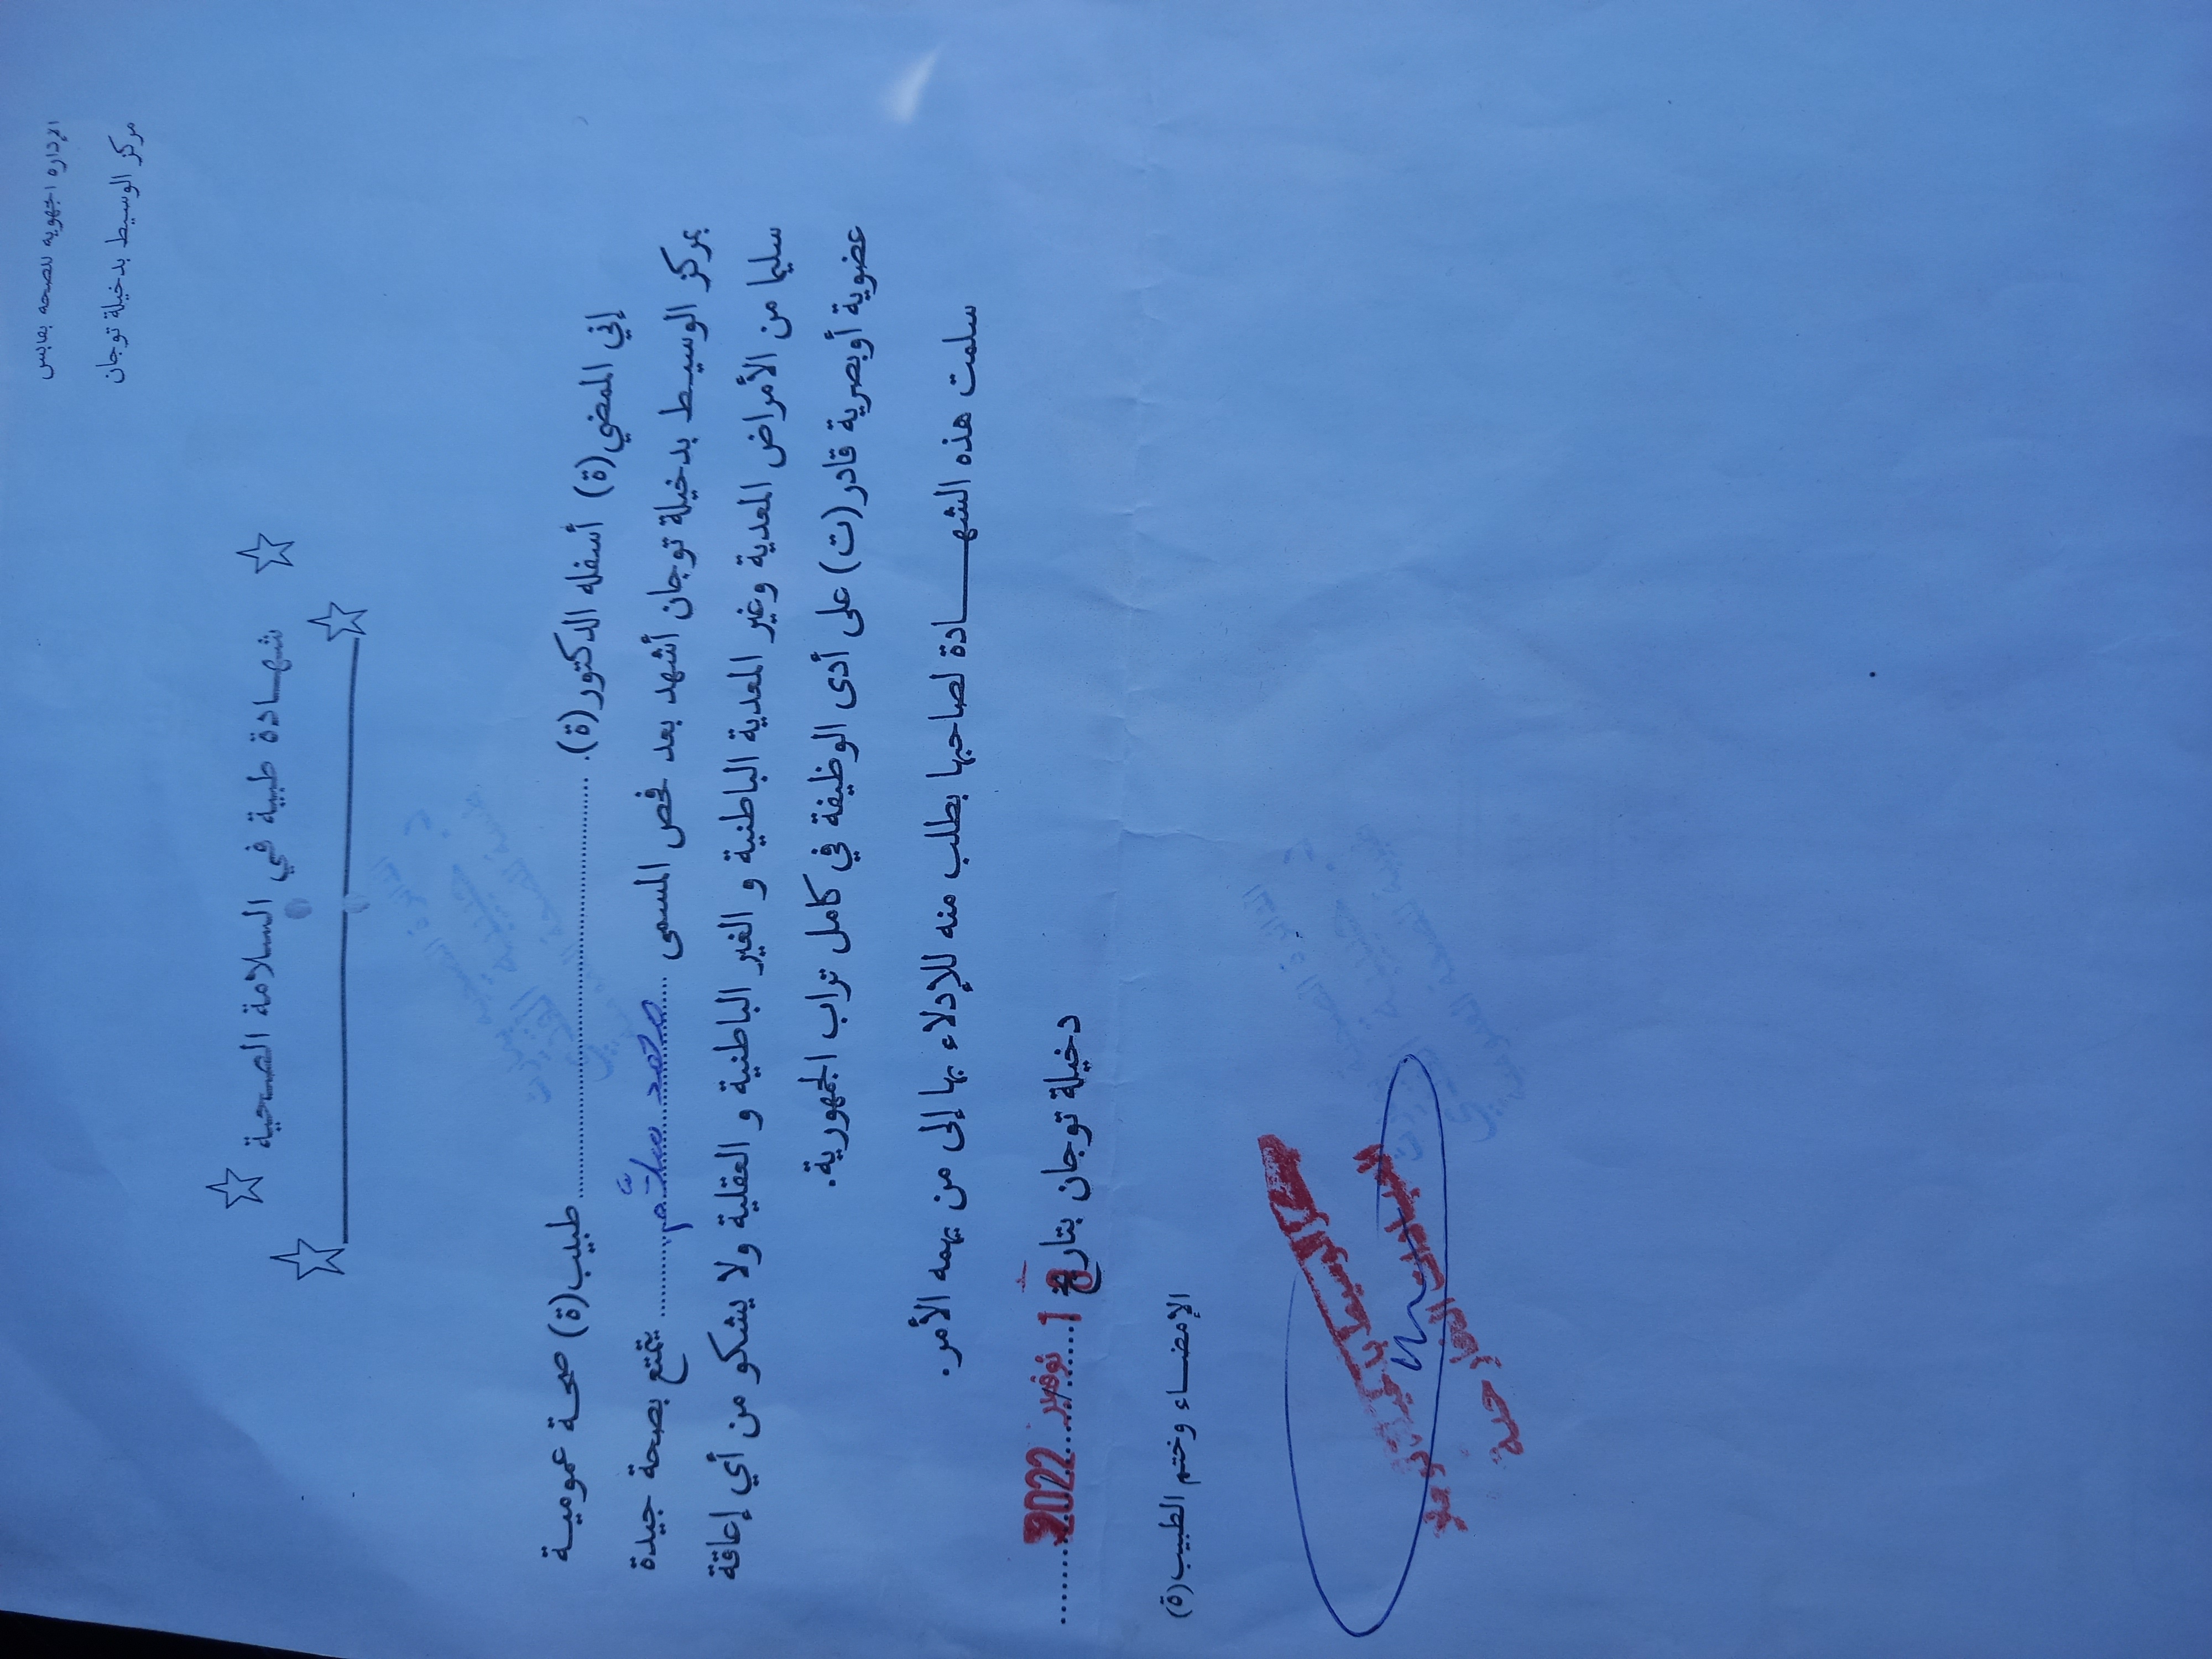 الإدارة الجهوية للصحة بقابس
مركز الوسيط بدخيلة توجان
شهـادة طبية في السلامة الصحية
إني الممضي(ة) أسفله الدكتور(ة). .................... طبيب(ة) صحة عمومية
بمركز الوسيط بدخيلة توجان أشهد بعد فحص المسمى ...محمد سلّام... يتمتع بصحة جيدة
سليما من الأمراض المعدية وغير المعدية الباطنية و الغير الباطنية و العقلية ولا يشكو من أي إعاقة
عضوية أوبصرية قادر(ت) على أدى الوظيفة في كامل تراب الجمهورية.
سلمت هذه الشهـــــادة لصاحبها بطلب منه للإدلاء بها إلى من يهمه الأمر.
دخيلة توجان بتاريخ
نوفمبر 2022
الإمضـاء وختم الطبيب(ة)
الوسيط